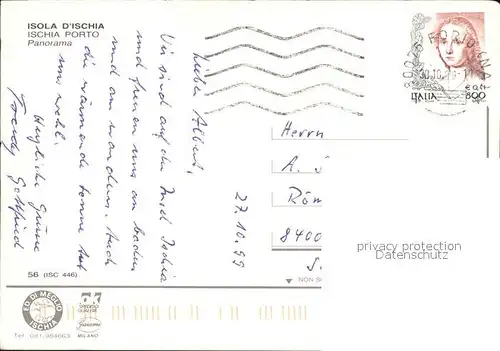 ISOLA D'ISCHIA
ISCHIA PORTO
Panorama
Lieber Albert,
Wir sind auf der Insel Ischia
und freuen uns am baden
und am wandern. Auch
die wärmende Sonne tut
uns wohl.
Herzliche Grüsse
Gottfried
27.10.99
Herrn
A.
Röm
8400
S.
80075 FORIO (NA)
30.10.
ITALIA
€ 0,41
800
privacy protection
Datenschutz
56 (ISC 446)
NON
ED. DI MEGLIO
ISCHIA
MILANO
Tel. 081.984663